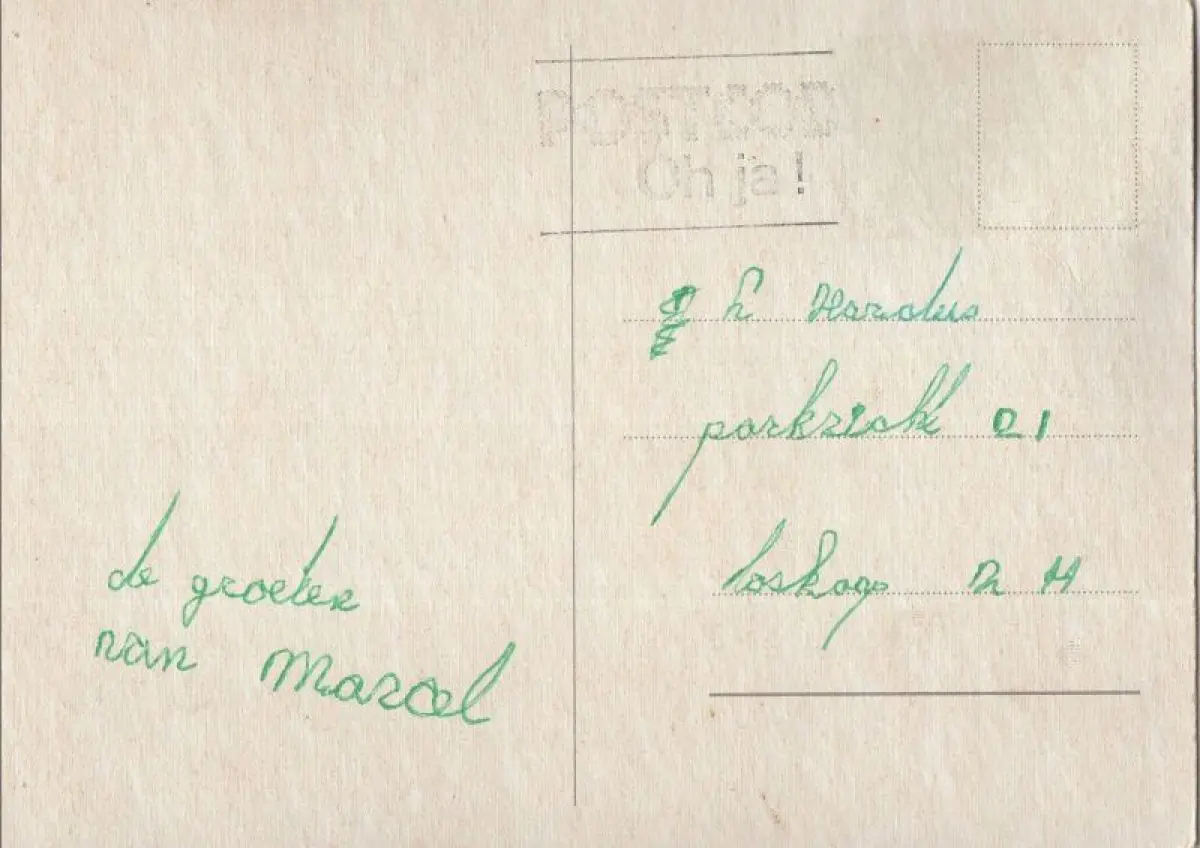 POSTCOD
Oh ja!
h Hardus
parkzicht 21
boskoop Z H
de groeten
van Marcel